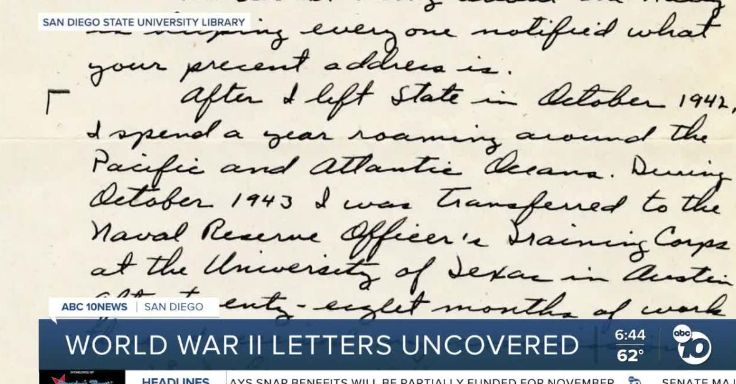 SAN DIEGO STATE UNIVERSITY LIBRARY
is keeping everyone notified what
your present address is.
After I left State in October 1942,
I spend a year roaming around the
Pacific and Atlantic Oceans. During
October 1943 I was transferred to the
Naval Reserve Officer's Training Corps
at the University of Texas in Austin
After twenty-eight months of work
ABC 10NEWS | SAN DIEGO
WORLD WAR II LETTERS UNCOVERED
6:44
62°
abc 10
HEADLINES
AYS SNAP BENEFITS WILL BE PARTIALLY FUNDED FOR NOVEMBER
SENATE MA